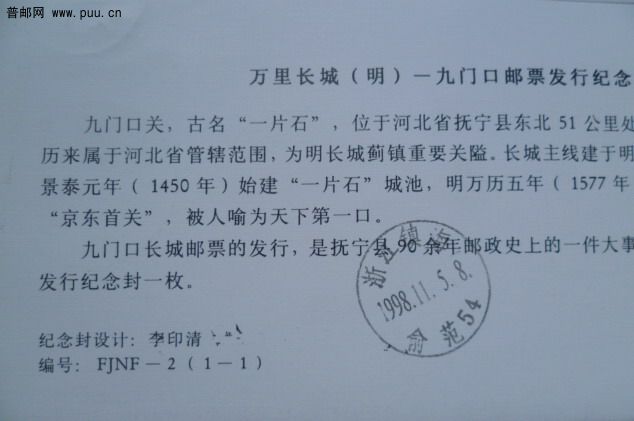 普邮网 www.puu.cn
万里长城（明）－九门口邮票发行纪念
九门口关，古名“一片石”，位于河北省抚宁县东北 51 公里处
历来属于河北省管辖范围，为明长城蓟镇重要关隘。长城主线建于明
景泰元年（1450 年）始建“一片石”城池，明万历五年（1577 年
“京东首关”，被人喻为天下第一口。
九门口长城邮票的发行，是抚宁县 90 余年邮政史上的一件大事
发行纪念封一枚。
浙江镇海
1998.11.5.8.
俞范54
纪念封设计：李印清
编号：FJNF－2（1－1）